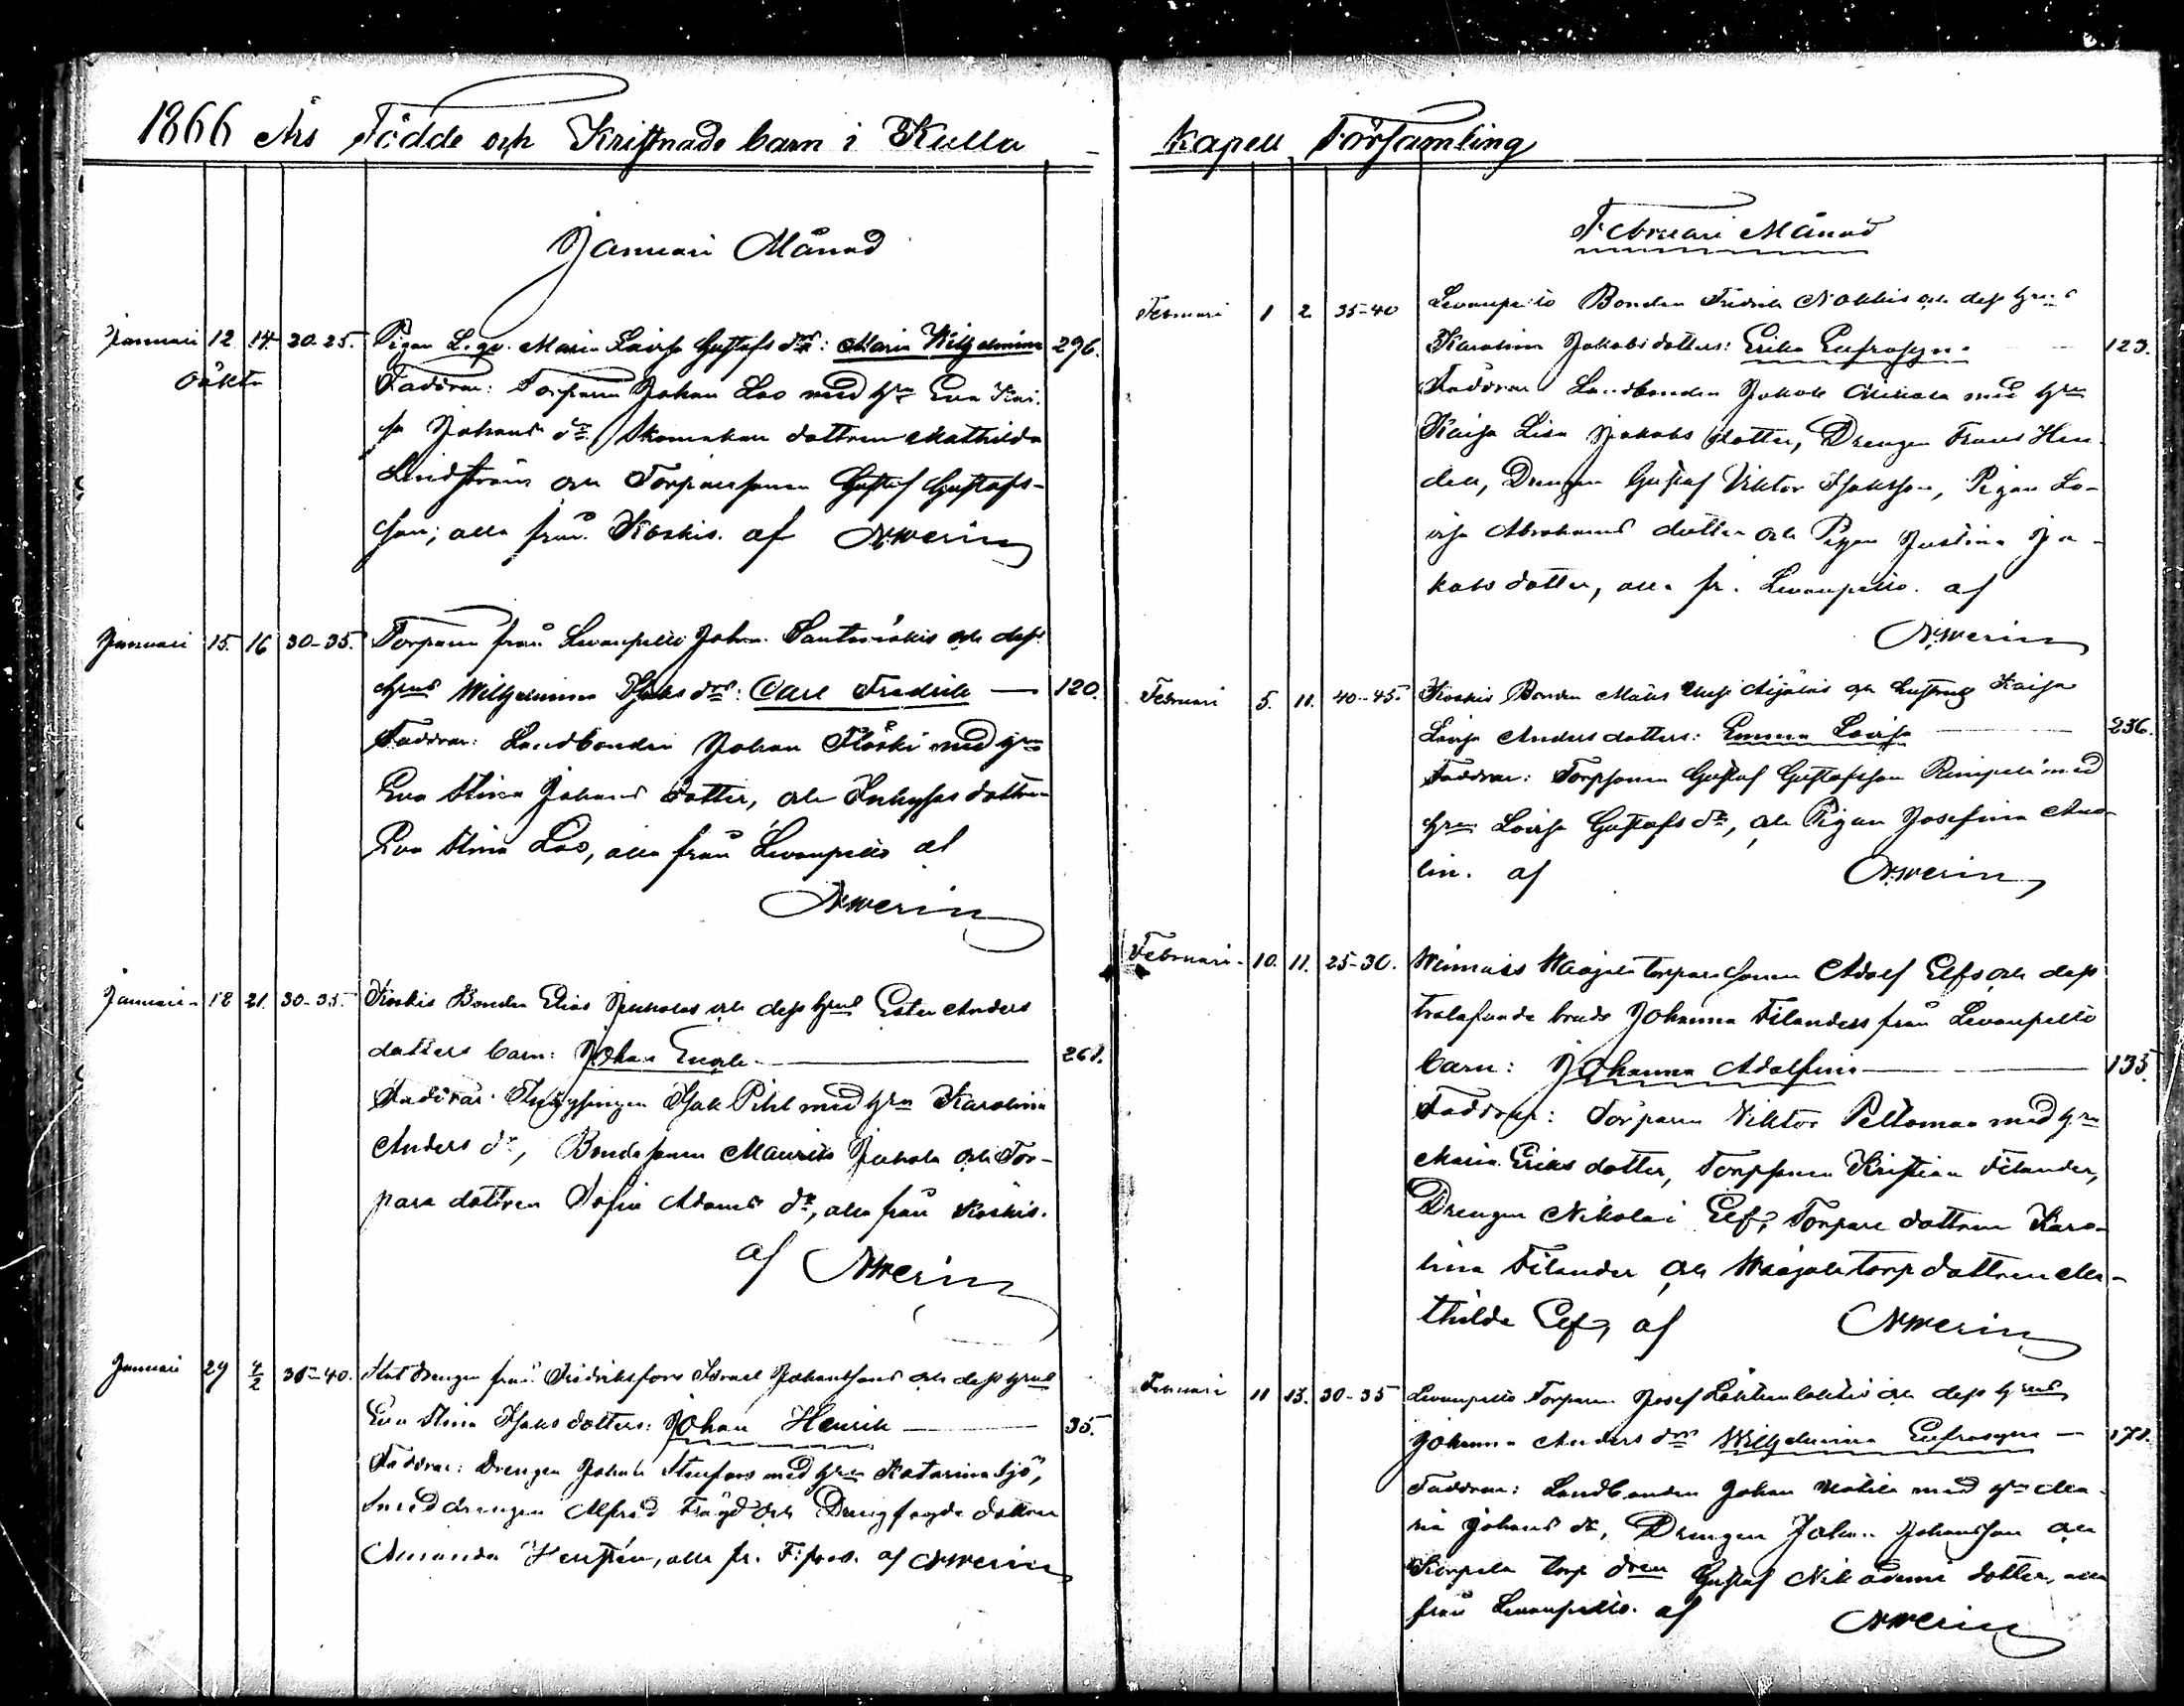 1866 Års Födde och Kristnade barn i Kulla
Januari Månad
Januari 12 14 20-25. Pigan L. qv. Maria Lovisa Gustafs drs: Maria Wilhelmina 296.
Oäkta Faddrar: Torparen Johan Lao med hn Eva Kai-
sa Johans dr, Skomakare dottren Mathilda
Lindström och Torparesonen Gustaf Gustafs-
son; alla från Koskis. af
Januari 15. 16 30-35. Torparen från Levanpelto Johan och dess
hrus Wilhelmina Isaks drs: Carl Fredrik — 120.
Faddrar: Landbonden Johan med hrn
Eva Stina Johans dotter, och Inhyses dottren
Eva Stina Lao, alla från Levanpelto af
Januari 18 21. 30-35. Koskis Bonden Elias och dess hrus Ester Anders
dotters barn: Johan Enok — 261.
Faddrar: Isak Pihl med hrn Karolina
Anders dr, Bondesonen Maurits Jukola och Tor-
pare dottren Sofia Adams dr, alla från Koskis.
af
Januari 29 4/2 35-40. Statdrengen från Fredriksfors Israel Johanssons och dess hrus
Eva Stina Isaks dotters: Johan Henrik — 35.
Faddrar: Drengen Johan Stenfors med hrn Katarina Sjö,
Smeddrengen Alfred och dottren
Amanda, alla fr. F:fors. af
Kapell Församling
Februari Månad
Februari 1 2 35-40 Levanpelto Bonden Fredrik och dess hrus
Karolina Jakobs dotters: Erika Eufrosyne — 123.
Faddrar Landbonden Jakob med hrn
Kaisa Lisa Jakobs dotter, Drengen Frans Hen-
dell, Drengen Gustaf Viktor Isaksson, Pigan Lo-
visa Abrahams dotter och Pigan Justina Ja-
kobs dotter, alla fr. Levanpelto. af
Februari 5. 11. 40-45. Koskis Bonden Mats och hustrus Kaisa
Lovisa Anders dotters: Emma Lovisa — 236.
Faddrar: Torpsonen Gustaf Gustafsson med
hrn Lovisa Gustafs dr, och Pigan Josefina Ana-
lin. af
Februari 10. 11. 25-30. Torparesonen Adolf Elfs och dess
trolofvade bruds Johanna Filanders från Levanpelto
barn: Johanna Adolfina — 135.
Faddrar: Torparen Viktor Peltomaa med hrn
Maria Eriks dotter, Torpsonen Kristian Filander,
Drengen Nikolai Elf, Torpare dottren Karo-
lina Filander och torpdottren Ma-
thilda Elf, af
Februari 11 13. 30-35 Levanpelto Torparen Josef och dess hrus
Johanna Anders drs Wilhelmina Eufrosyne — 171.
Faddrar: Landbonden Johan med hrn Ma-
ria Johans dr, Drengen Johan Johansson och
torp Gustaf dotter, alla
från Levanpelto. af